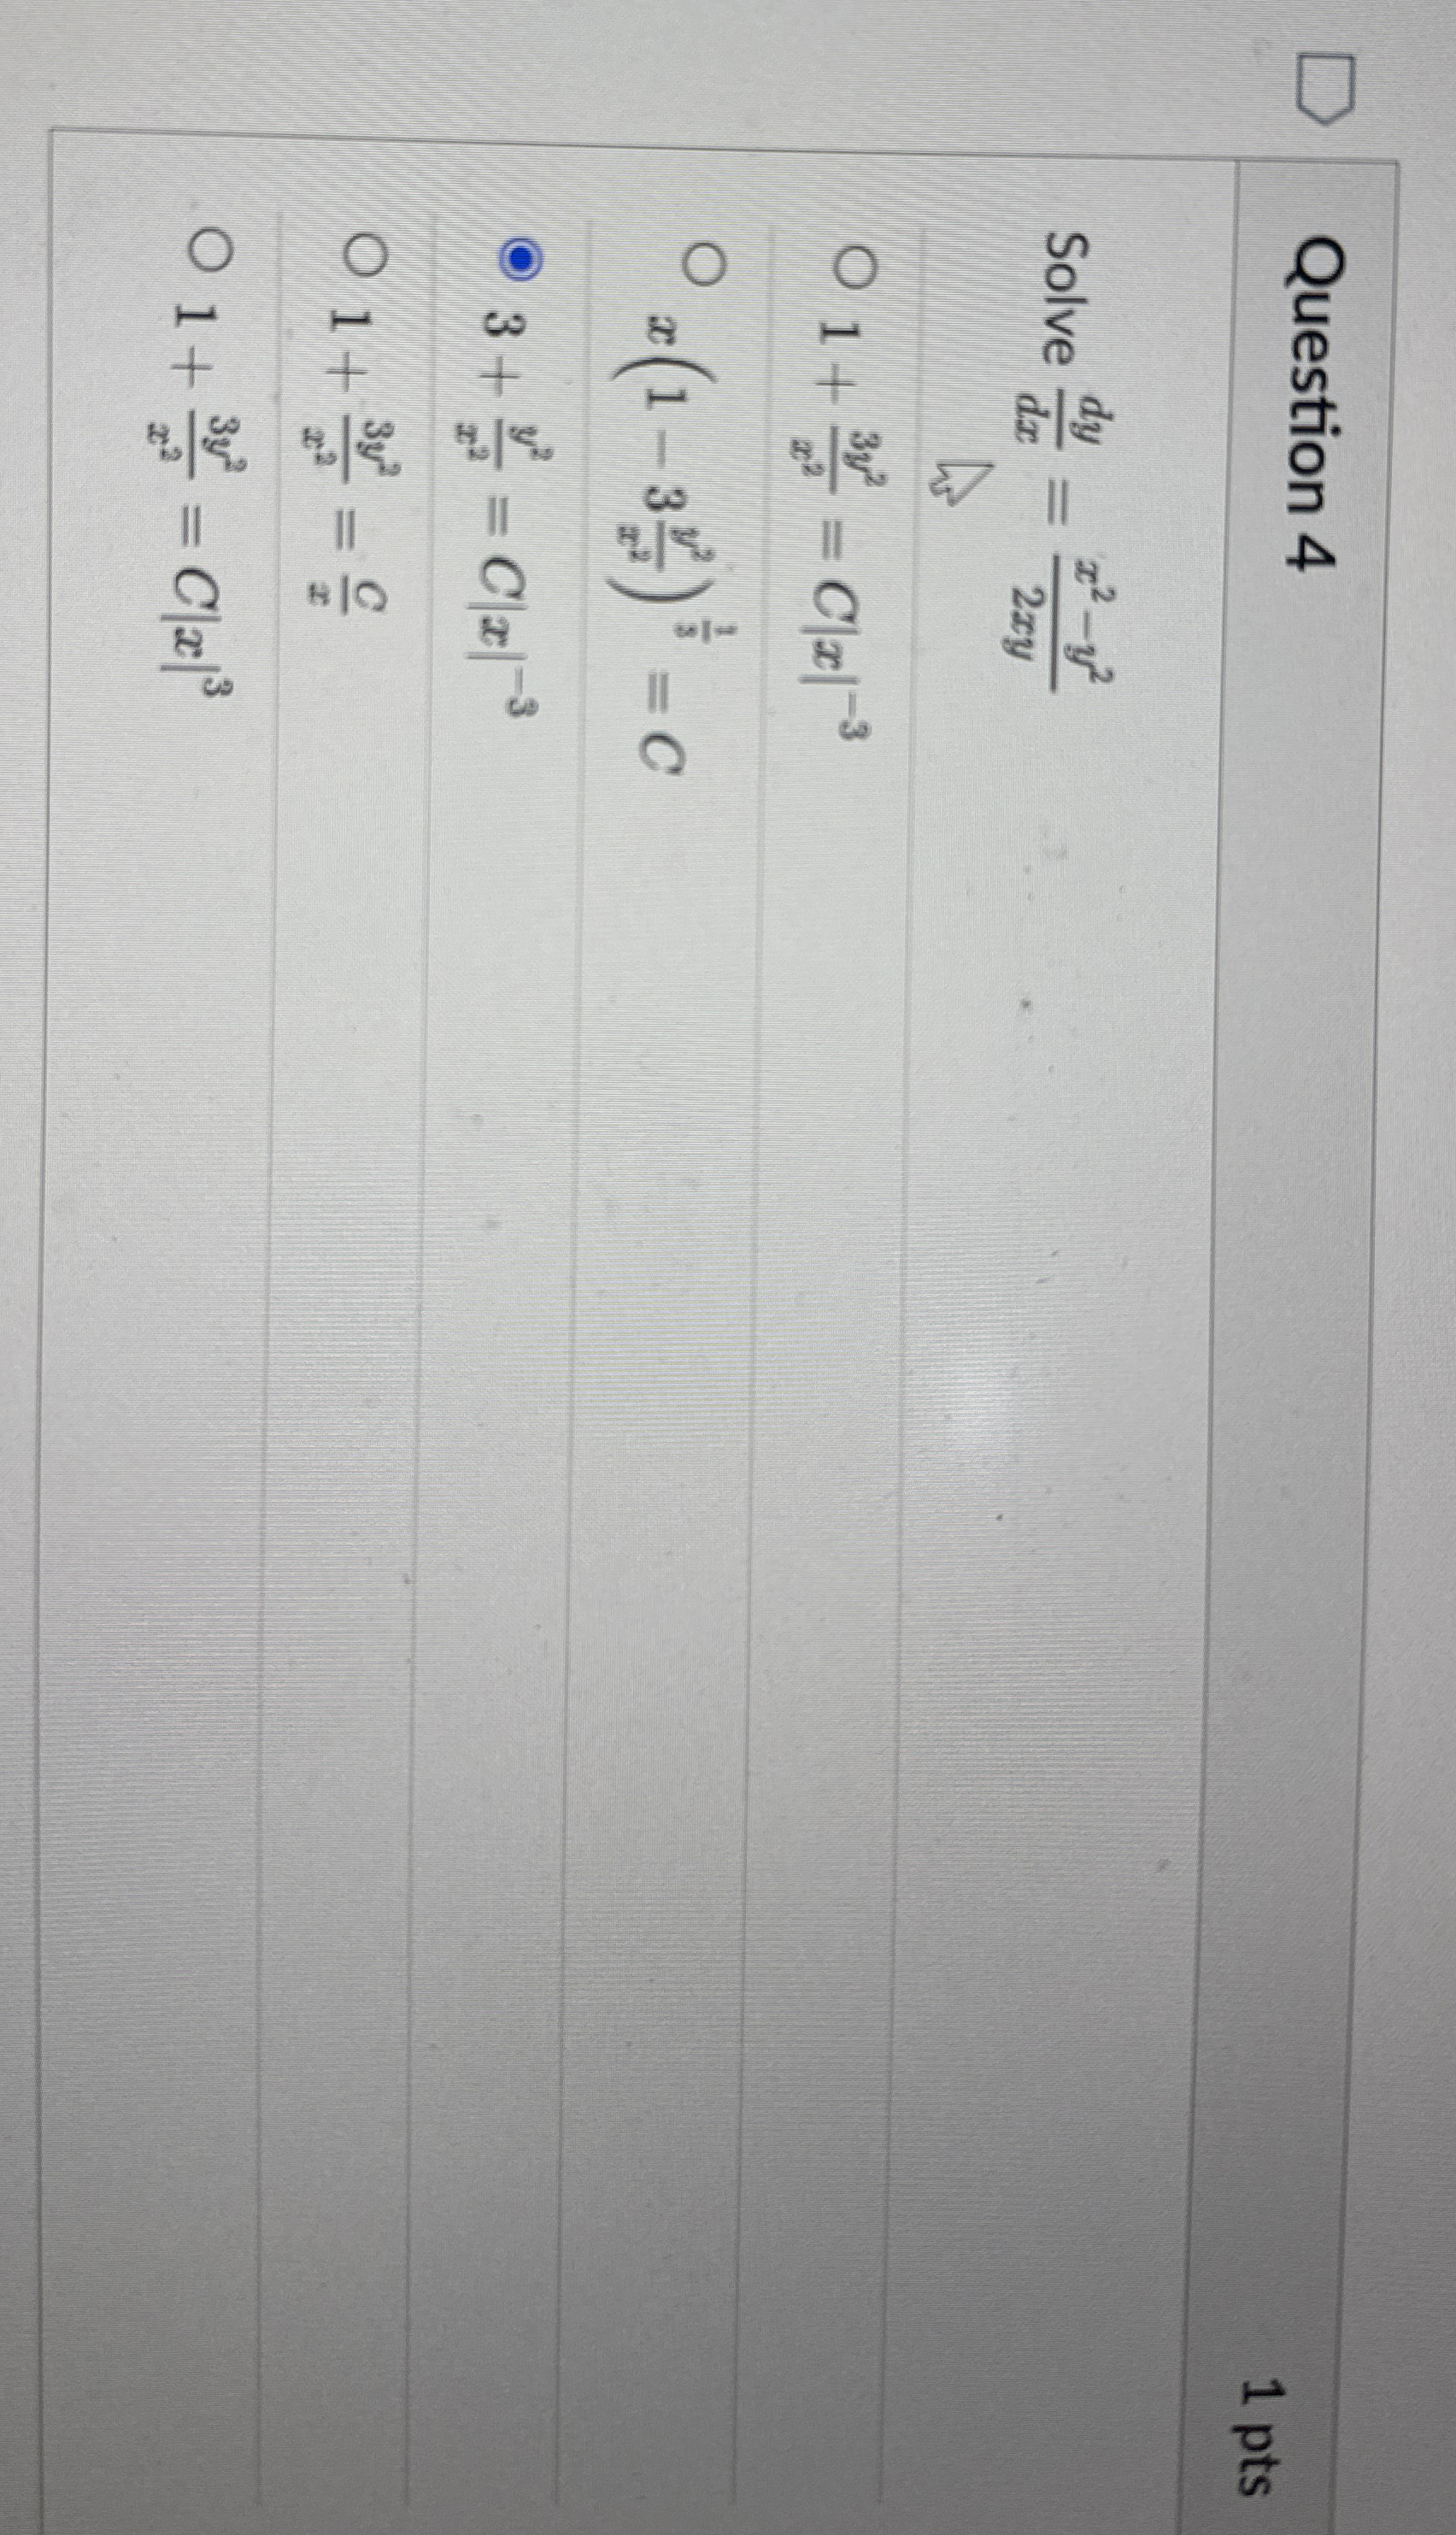 Question 4
1 pts
Solve \frac{dy}{dx} = \frac{x^2-y^2}{2xy}
1 + \frac{3y^2}{x^2} = C|x|^{-3}
x(1 - 3\frac{y^2}{x^2})^{\frac{1}{3}} = C
3 + \frac{y^2}{x^2} = C|x|^{-3}
1 + \frac{3y^2}{x^2} = \frac{C}{x}
1 + \frac{3y^2}{x^2} = C|x|^3